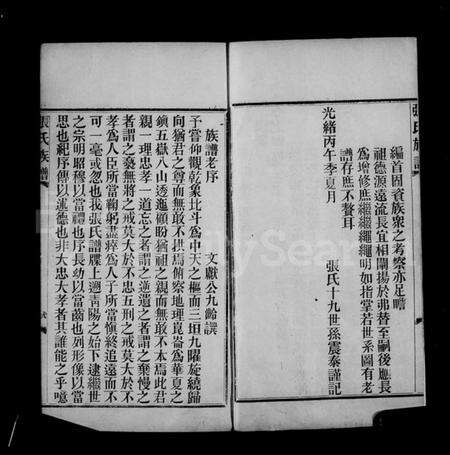 張氏族譜
編首固資族衆之考察亦足瞻
祖德源遠流長宜相闡揚於弗替至嗣後應長
爲增修應繼繼繩繩明如指掌若世系圖有老
譜存應不贅耳
張氏十九世孫震泰謹記
光緒丙午季夏月
族譜老序
文獻公九齡譔
予嘗仰觀乾象比斗爲中天之樞而三垣九曜旋繞歸
向猶君之尊而無敢不拱焉俯察地理崑崙爲華夏之
鎮五嶽八山透迤顧盼猶祖之親而無敢不本焉此君
親一理忠孝一道忘之者謂之逆遺之者謂之棄慢之
者謂之褻無將之戒莫大於不忠五刑之戒莫大於不
孝爲人臣所當鞠躬盡瘁爲人子所當愼終追遠而不
可一毫或忽也我張氏譜牒上遡靑陽之始下逮繼世
之宗明昭穆以當禮也序長幼以當齒也列形像以當
思也紀序傳以述德也非大忠大孝者其誰能之乎噫
張氏族譜
FamilySearch